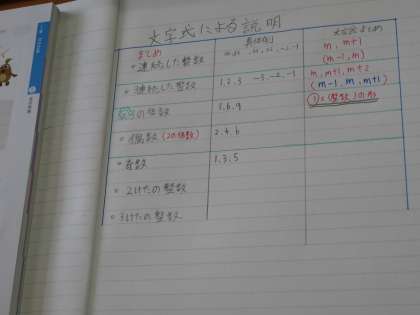 文字式による説明
まとめ 具体例 文字式 まとめ
・連続した整数 m, m+1
(m-1, m)
・連続した整数 1, 2, 3 -3, -2, -1 m, m+1, m+2
(m-1, m, m+1)
の倍数 3, 6, 9 ×(整数)の形
・偶数(2の倍数) 2, 4, 6
・奇数 1, 3, 5
・2けたの整数
・3けたの整数